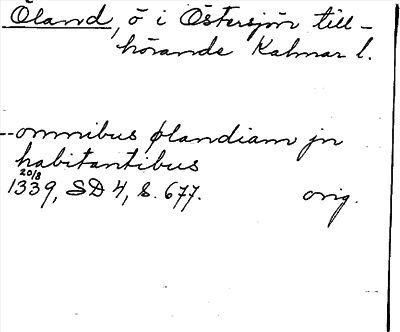 Öland, ö i Östersjön till-
hörande Kalmar l.
--omnibus ølandiam jn
habitantibus
20/8
1339, SD 4, S. 677. orig.